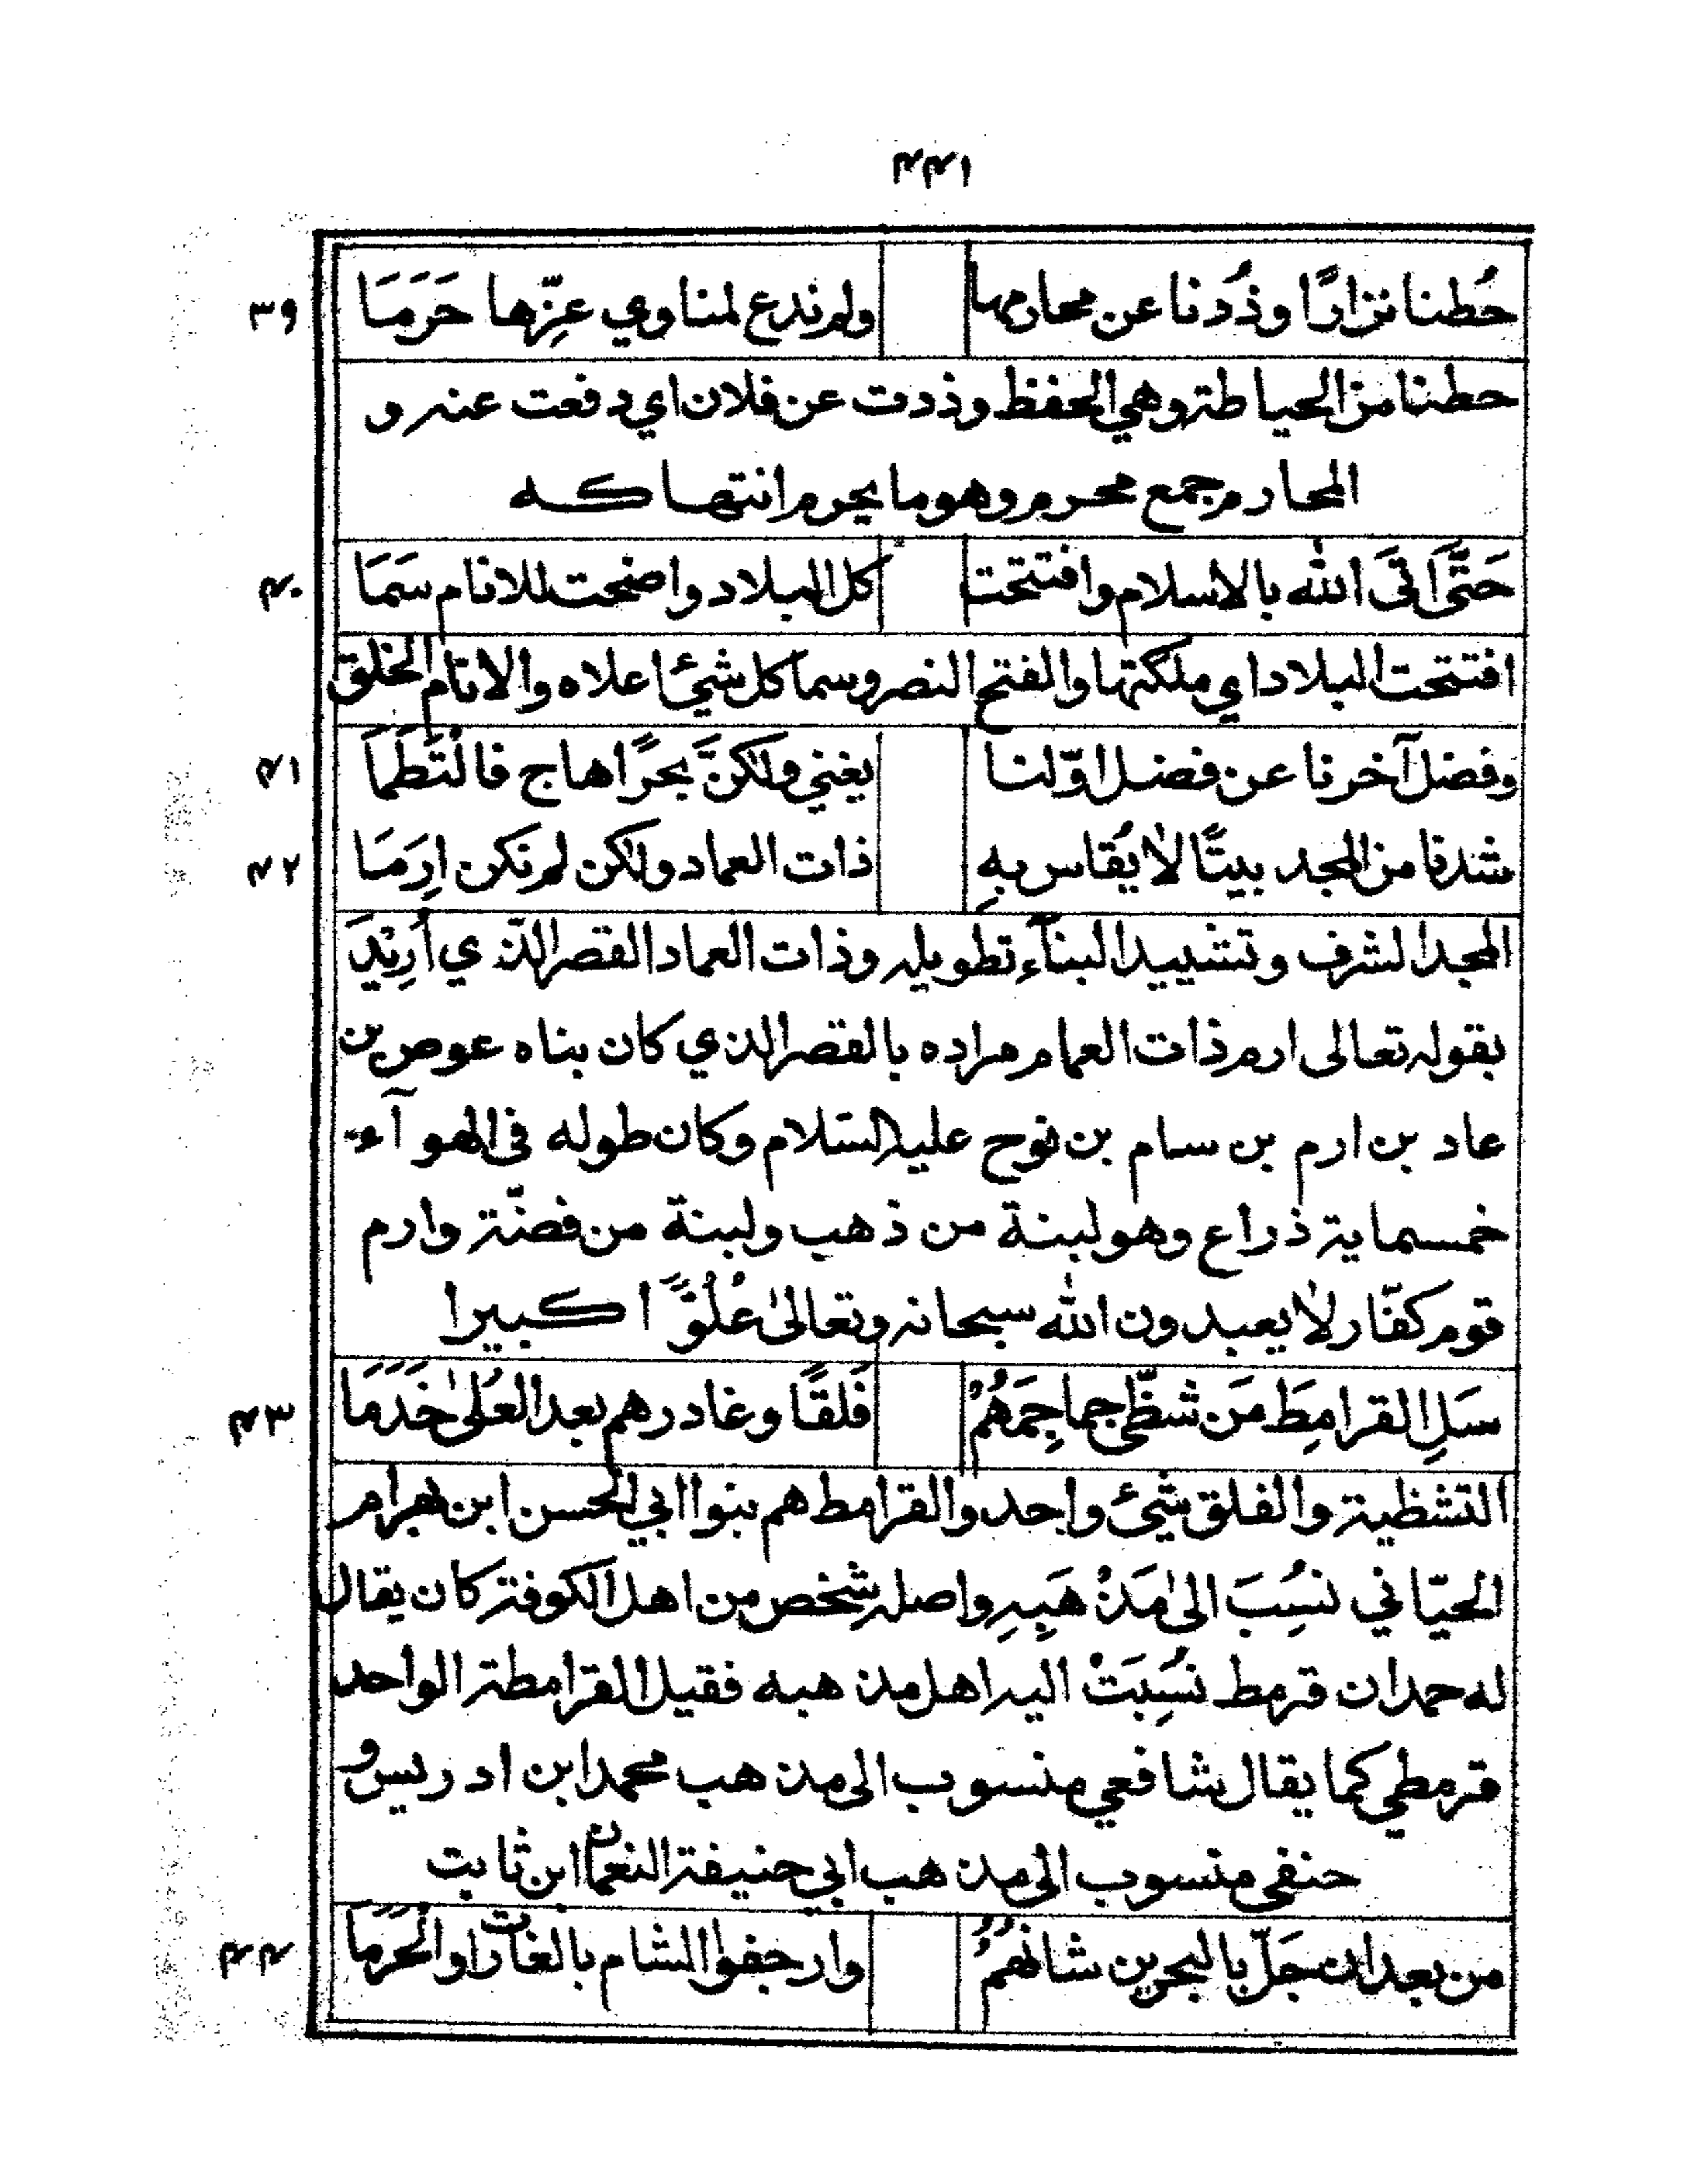 ۴۴۱
حُطنا نزارًا وذُدنا عن محارمها ولم ندع لمناوي عِزّها حَرَمَا ۳۹
حطنا من الحياطة وهي الحفظ وذدت عن فلان اي دفعت عنه و
المحارم جمع محرم وهو ما يحرم انتهاكه
حَتَّى اَتَى الله بالاسلام وافتتحت كل البلاد واضحت للانام سَمَا ۴۰
افتتحت البلاد اي ملكتها والفتح النصر وسما كل شيئ اعلاه والانام الخلق
وفضل آخرنا عن فضل اوّلنا يغني ولكنَّ بحرًا هاج فالْتَطَمَا ۴۱
شدنا من المجد بيتًا لا يُقاس بهِ ذات العماد ولكن لم نكن اِرَمَا ۴۲
المجد الشرف وتشييد البنآء تطويله وذات العماد القصر الّذي اُرِيْدَ
بقوله تعالى ارم ذات العمام مراده بالقصر الذي كان بناه عوص بن
عاد بن ارم بن سام بن نوح عليه السّلام وكان طوله في الهوآء
خمسماية ذراع وهو لبنة من ذهب ولبنة من فضّة وارم
قوم كفّار لا يعبدون الله سبحانه وتعالىٰ عُلُوًّا كبيرا
سَلِ القرامِطَ مَن شظّى جماجِمَهُمْ فَلقًا وغادرهم بعد العُلىٰ خَدَمَا ۴۳
التشظية والفلق شيئ واحد والقرامط هم بنوا ابي الحسن ابن بهرام
الحيّاني نسُِبَ الىٰ مَذْهَبِهِ واصله شخص من اهل الكوفة كان يقال
له حمدان قرمط نُسِبَتْ اليه اهل مذهبه فقيل القرامطة الواحد
قرمطي كما يقال شافعي منسوب الى مذهب محمد ابن ادريس و
حنفي منسوب الى مذهب ابي حنيفة النعمان ابن ثابت
من بعد ان جَلّ بالبحرين شانُهُمُ وارجفوا الشام بالغارات والحَرَمَا ۴۴